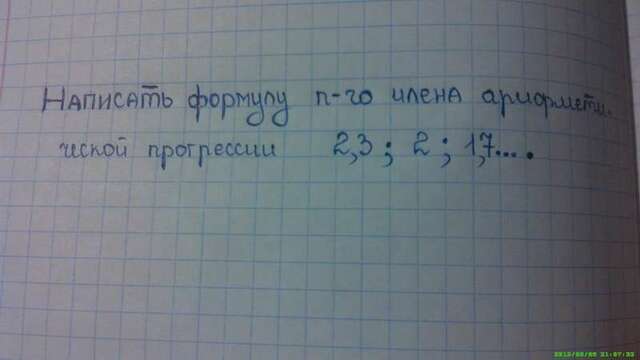 Написать формулу n-го члена арифмети-
ческой прогрессии 2,3 ; 2 ; 1,7....